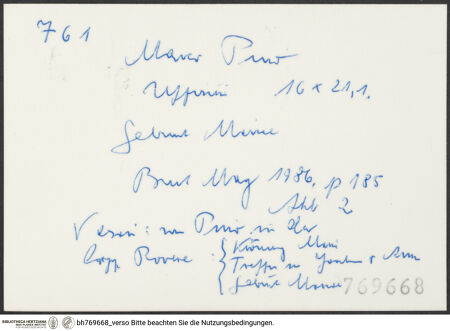 761
Marco Pino
Uffizien 16 x 21,1.
Geburt Mariae
Burl Mag 1986, p 185
Abb 2
Vasari: von Pino in der
Capp Rovere: Krönung Mari
Treffen v Joachim & Anna
Geburt Mariae
769668
BIBLIOTHECA HERTZIANA
bh769668_verso Bitte beachten Sie die Nutzungsbedingungen.